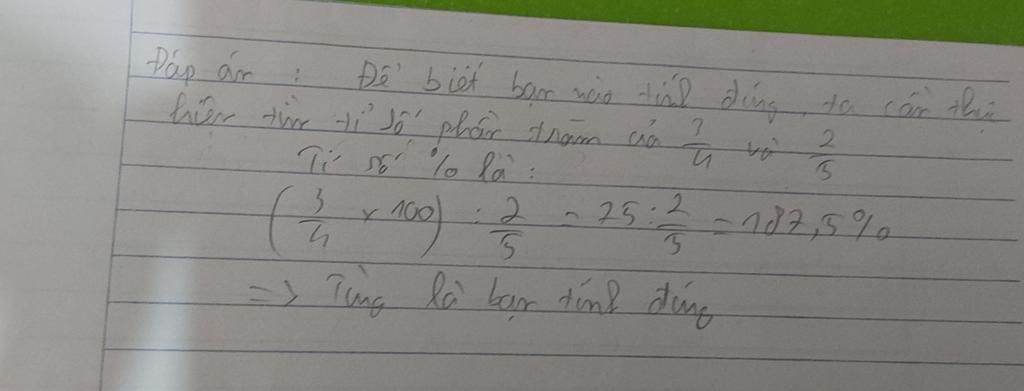 Đáp án : Để biết bạn nào tính đúng, ta cần thực
hiện tìm tỉ số phần trăm của 3/4 và 2/5
Tỉ số % là :
(3/4 x 100) : 2/5 = 75 : 2/5 = 187,5%
=> Tùng là bạn tính đúng